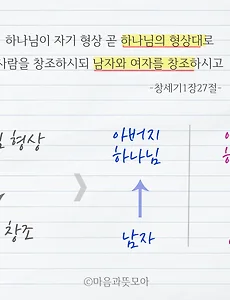 하나님이 자기 형상 곧 하나님의 형상대로
사람을 창조하시되 남자와 여자를 창조하시고
-창세기1장27절-
형상
아버지
하나님
창조
남자
©마음과뜻모아